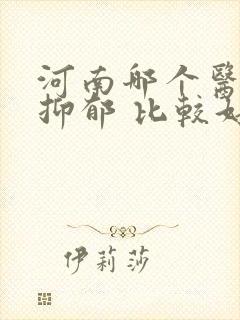 河南那个醫
抑郁 比較
伊莉莎